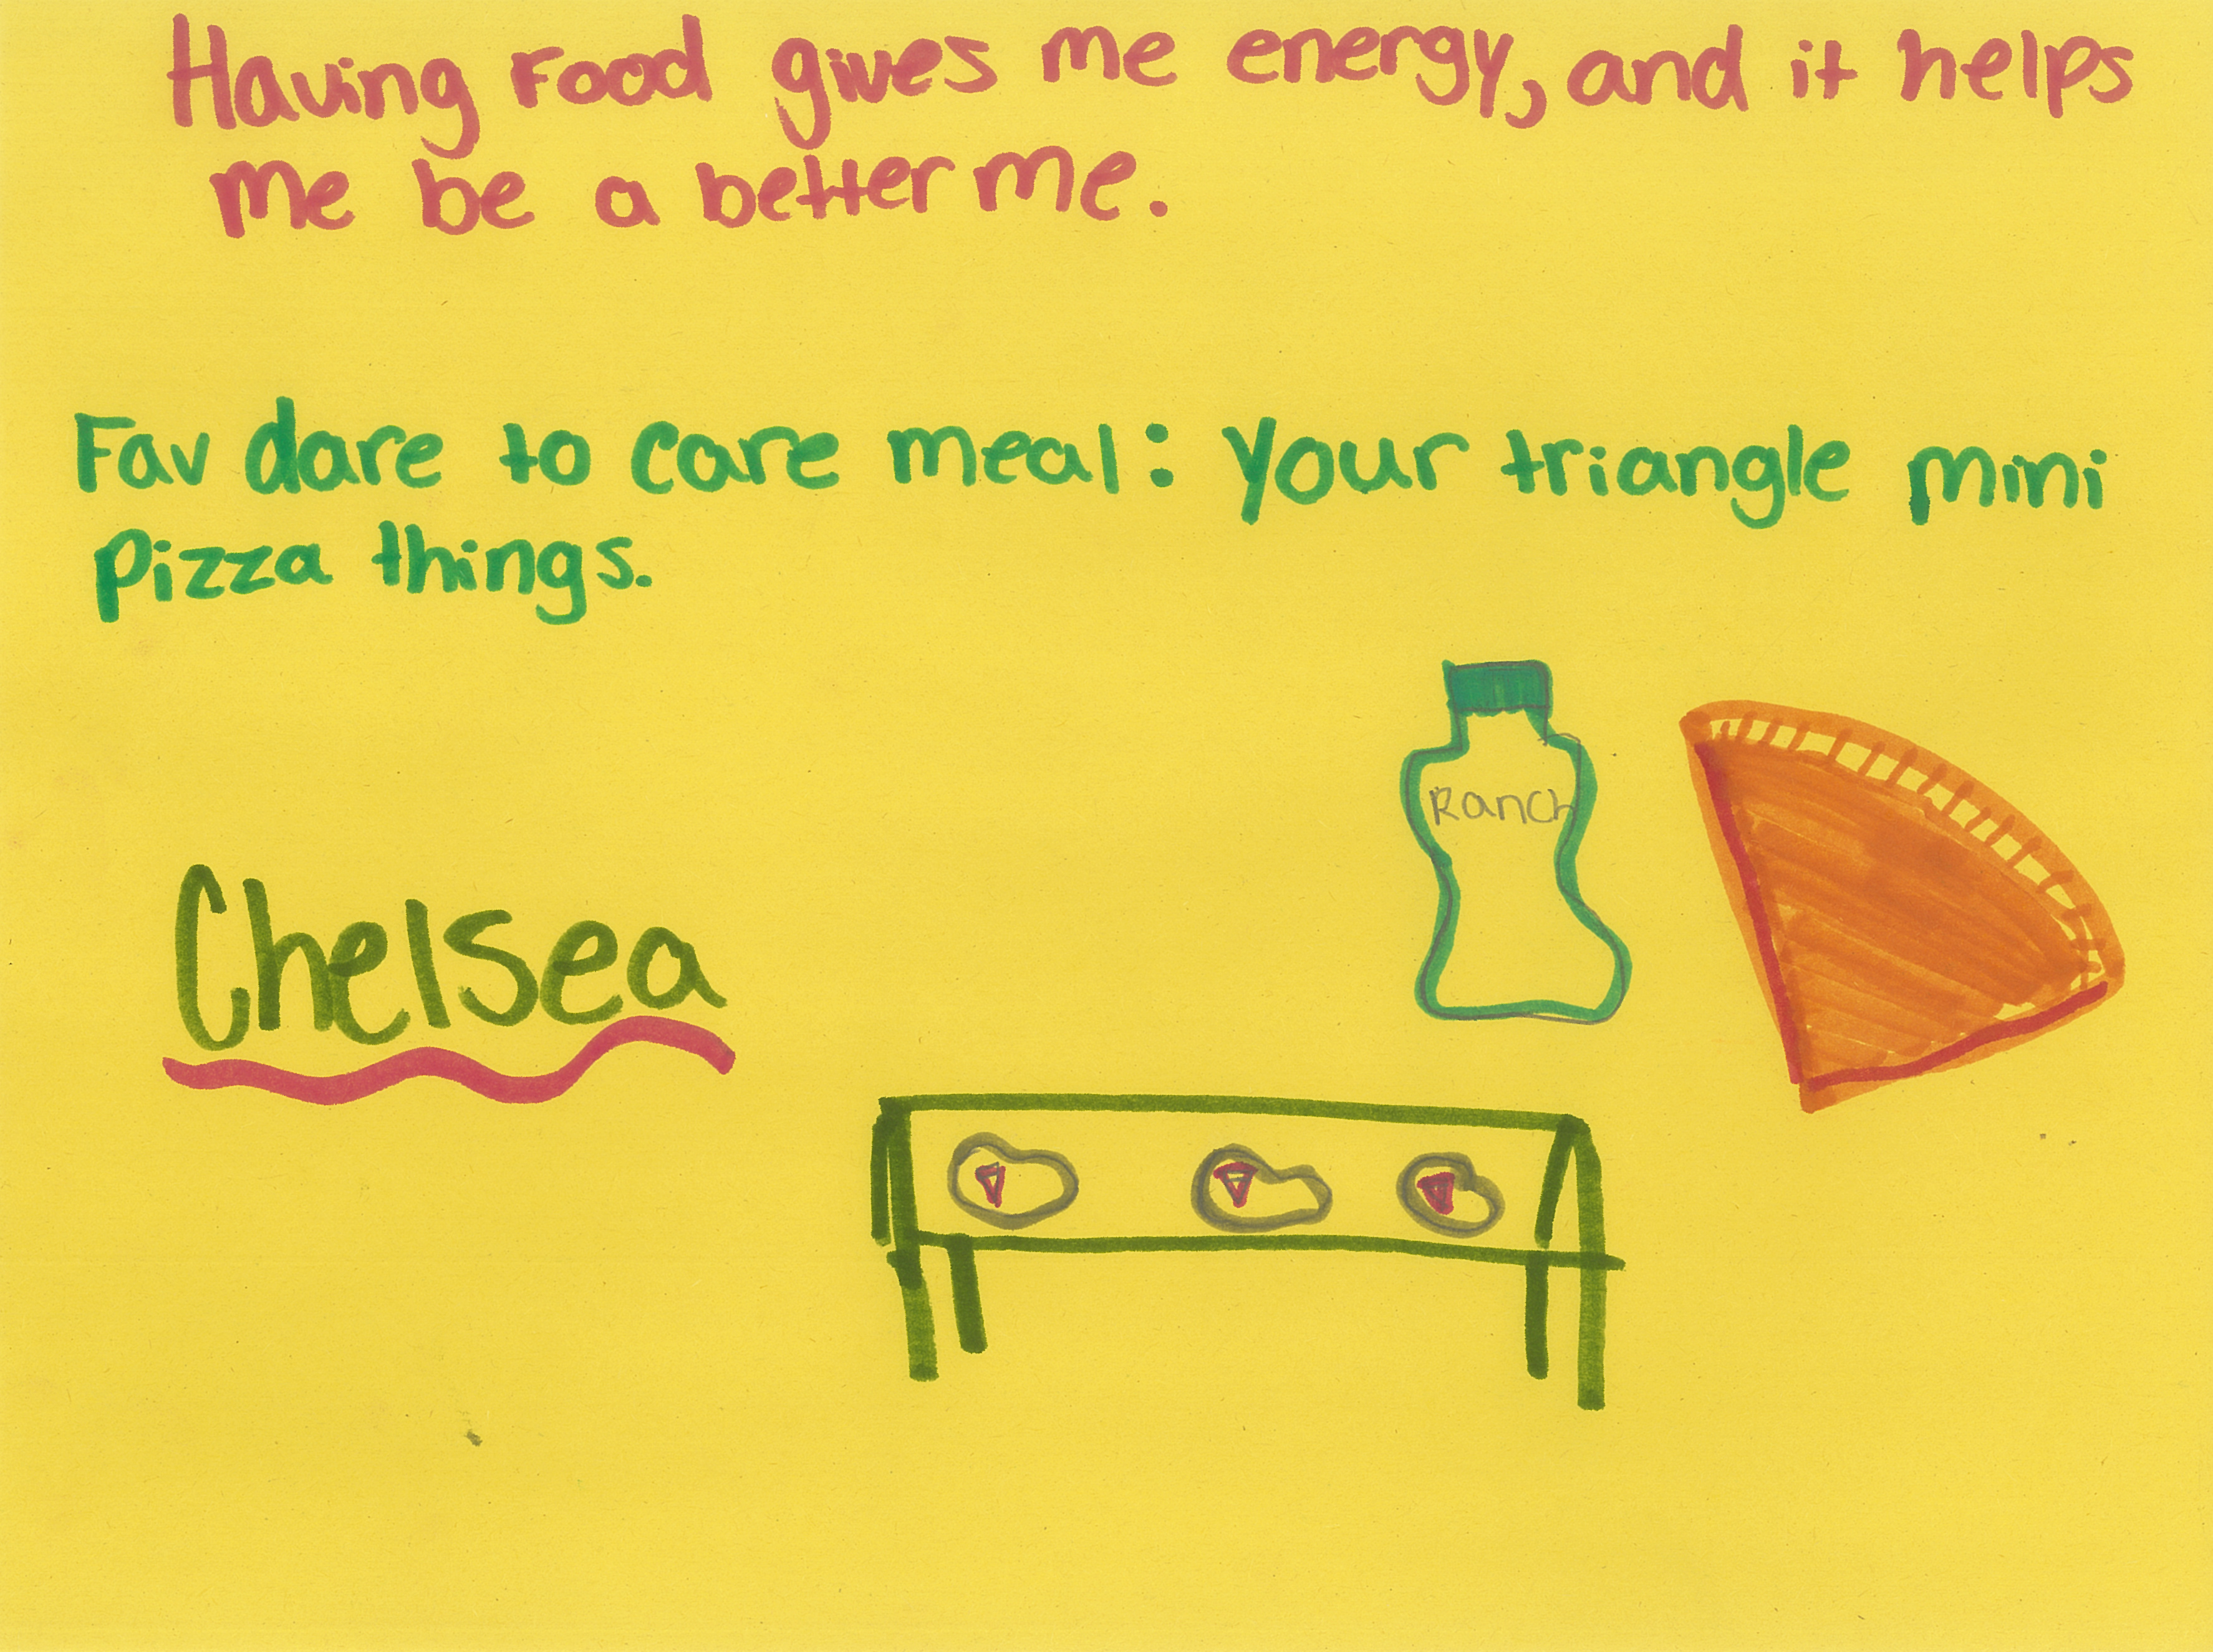 Having Food gives me energy, and it helps
me be a better me.
Fav dare to care meal: your triangle mini
pizza things.
Ranch
Chelsea